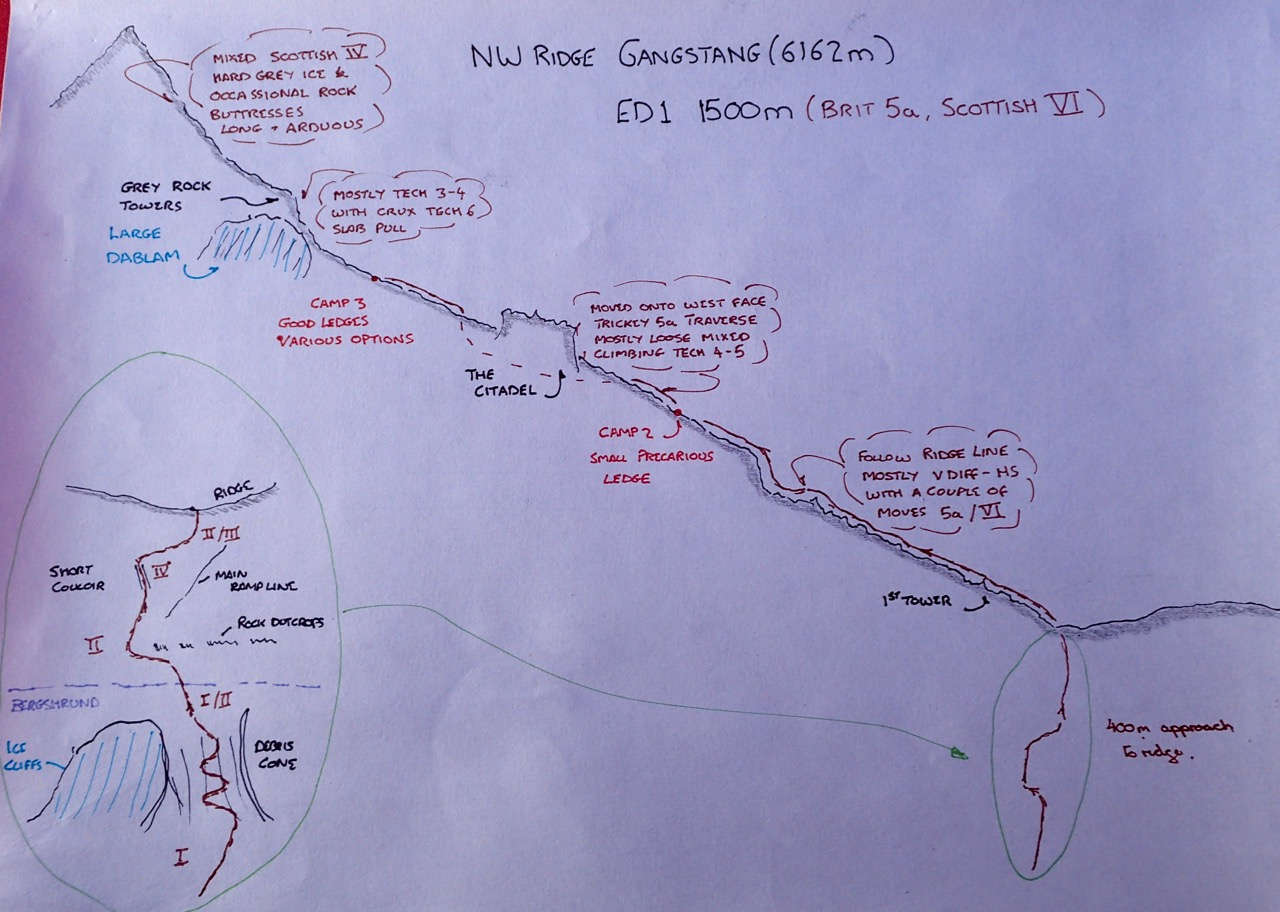 NW RIDGE GANGSTANG (6162m)
ED1 1500m (BRIT 5a, SCOTTISH VI)
MIXED SCOTTISH IV
HARD GREY ICE &
OCCASSIONAL ROCK
BUTTRESSES
LONG + ARDUOUS
GREY ROCK
TOWERS
MOSTLY TECH 3-4
WITH CRUX TECH 6
SLAB PULL
LARGE
DABLAM
CAMP 3
GOOD LEDGES
VARIOUS OPTIONS
MOVED ONTO WEST FACE
TRICKEY 5a TRAVERSE
MOSTLY LOOSE MIXED
CLIMBING TECH 4-5
THE
CITADEL
CAMP 2
SMALL PRECARIOUS
LEDGE
FOLLOW RIDGE LINE
MOSTLY VDIFF-HS
WITH A COUPLE OF
MOVES 5a/VI
1ST TOWER
400m approach
to ridge.
RIDGE
II/III
SHORT
COULOIR
IV
MAIN
RAMPLINE
ROCK OUTCROPS
II
I/II
BERGSHRUND
ICE
CLIFFS
DEBRIS
CONE
I